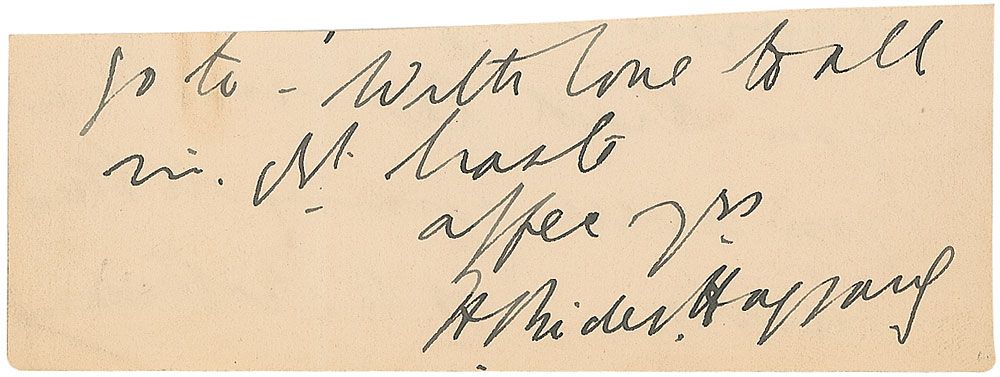 go to - With love to all
in gt. haste
affec yrs.
H Rider Haggard